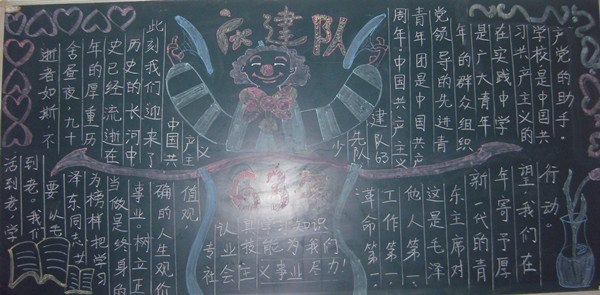 庆建队
63年
逝者如斯,不
含查夜,九十
年的厚重历
史已经流逝在
历史的长河中
此刻我们迎来了
中国共
产主义
少先队
建队63
周年。中国共产主义
青年团是中国共产
党领导的先进青
年的群众组织
是广大青年
在实践中学
习共产主义的
学校是中国共
产党的助手。
活到老,学
到老。我们
要以
泽东同志
为榜样把学习
当做是终身的
事业。树立正
确的人生观价
值观,
知识
专业技能为我们
社会主义事业尽力!
革命第一,
工作第一,
他人第一,
这是毛泽
东主席对
新一代的青
年寄予厚
望,我们在
行动。